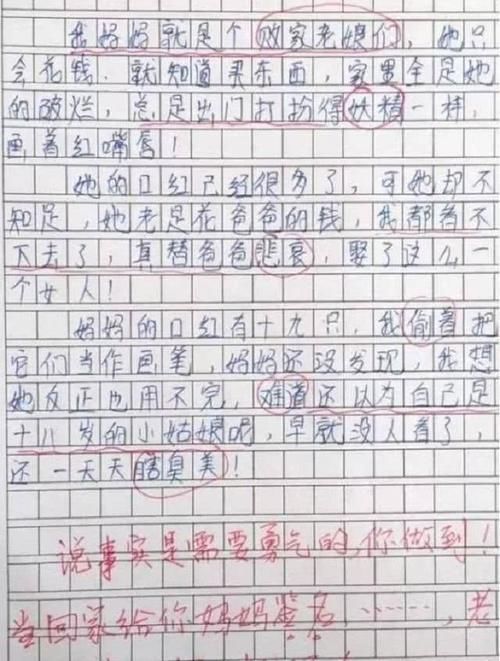 我妈妈就是个败家老娘们，她只
会花钱．就知道买东西，家里全是她
的破烂，总是出门打扮得妖精一样，
画着红嘴唇！
她的口红已经很多了，可她却不
知足，她老是花爸爸的钱，我都看不
下去了，真替爸爸悲哀，娶了这么一
个女人！
妈妈的口红有十九只，我偷着把
它们当作画笔，妈妈还没发现，我想
她反正也用不完，难道还以为自己是
十八岁的小姑娘呢，早就没人看了，
还一天天瞎臭美！
说事实是需要勇气的，你做到！
当回家给你妈妈签名……，老